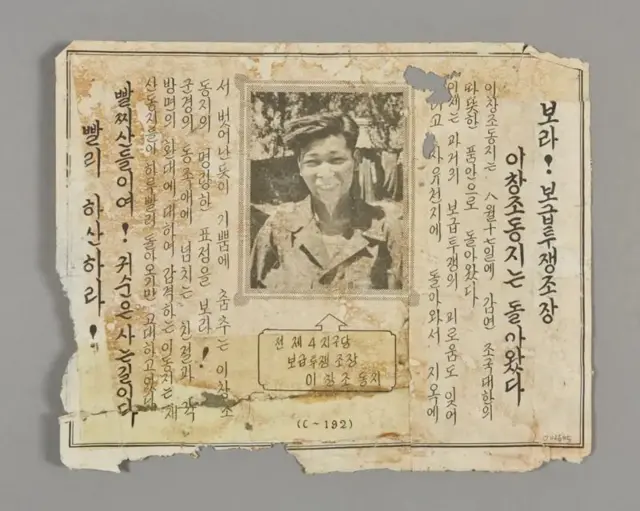 보라! 보급투쟁조장
이창조동지는 돌아왔다
이창조동지는 八월十七일에 감연 조국대한의
따뜻한 품안으로 돌아왔다
이제는 과거의 보급투쟁의 괴로움도 잊어
고 자유천지에 돌아와서 지옥에
서 벗어난듯이 기쁨에 춤추는 이창조
동지의 명랑한 표정을 보라!
군경의 동족애에 넘치는 친절과 각
방면의 환대에 대하여 감격하는 이동지는 재
산동지들이 하루빨리 돌아오기만 고대하고있다
빨찌산들이여! 귀순은 사는길이다
빨리 하산하라!
전 제4지구당
보급투쟁 조장
이창조 동지
(C-192)